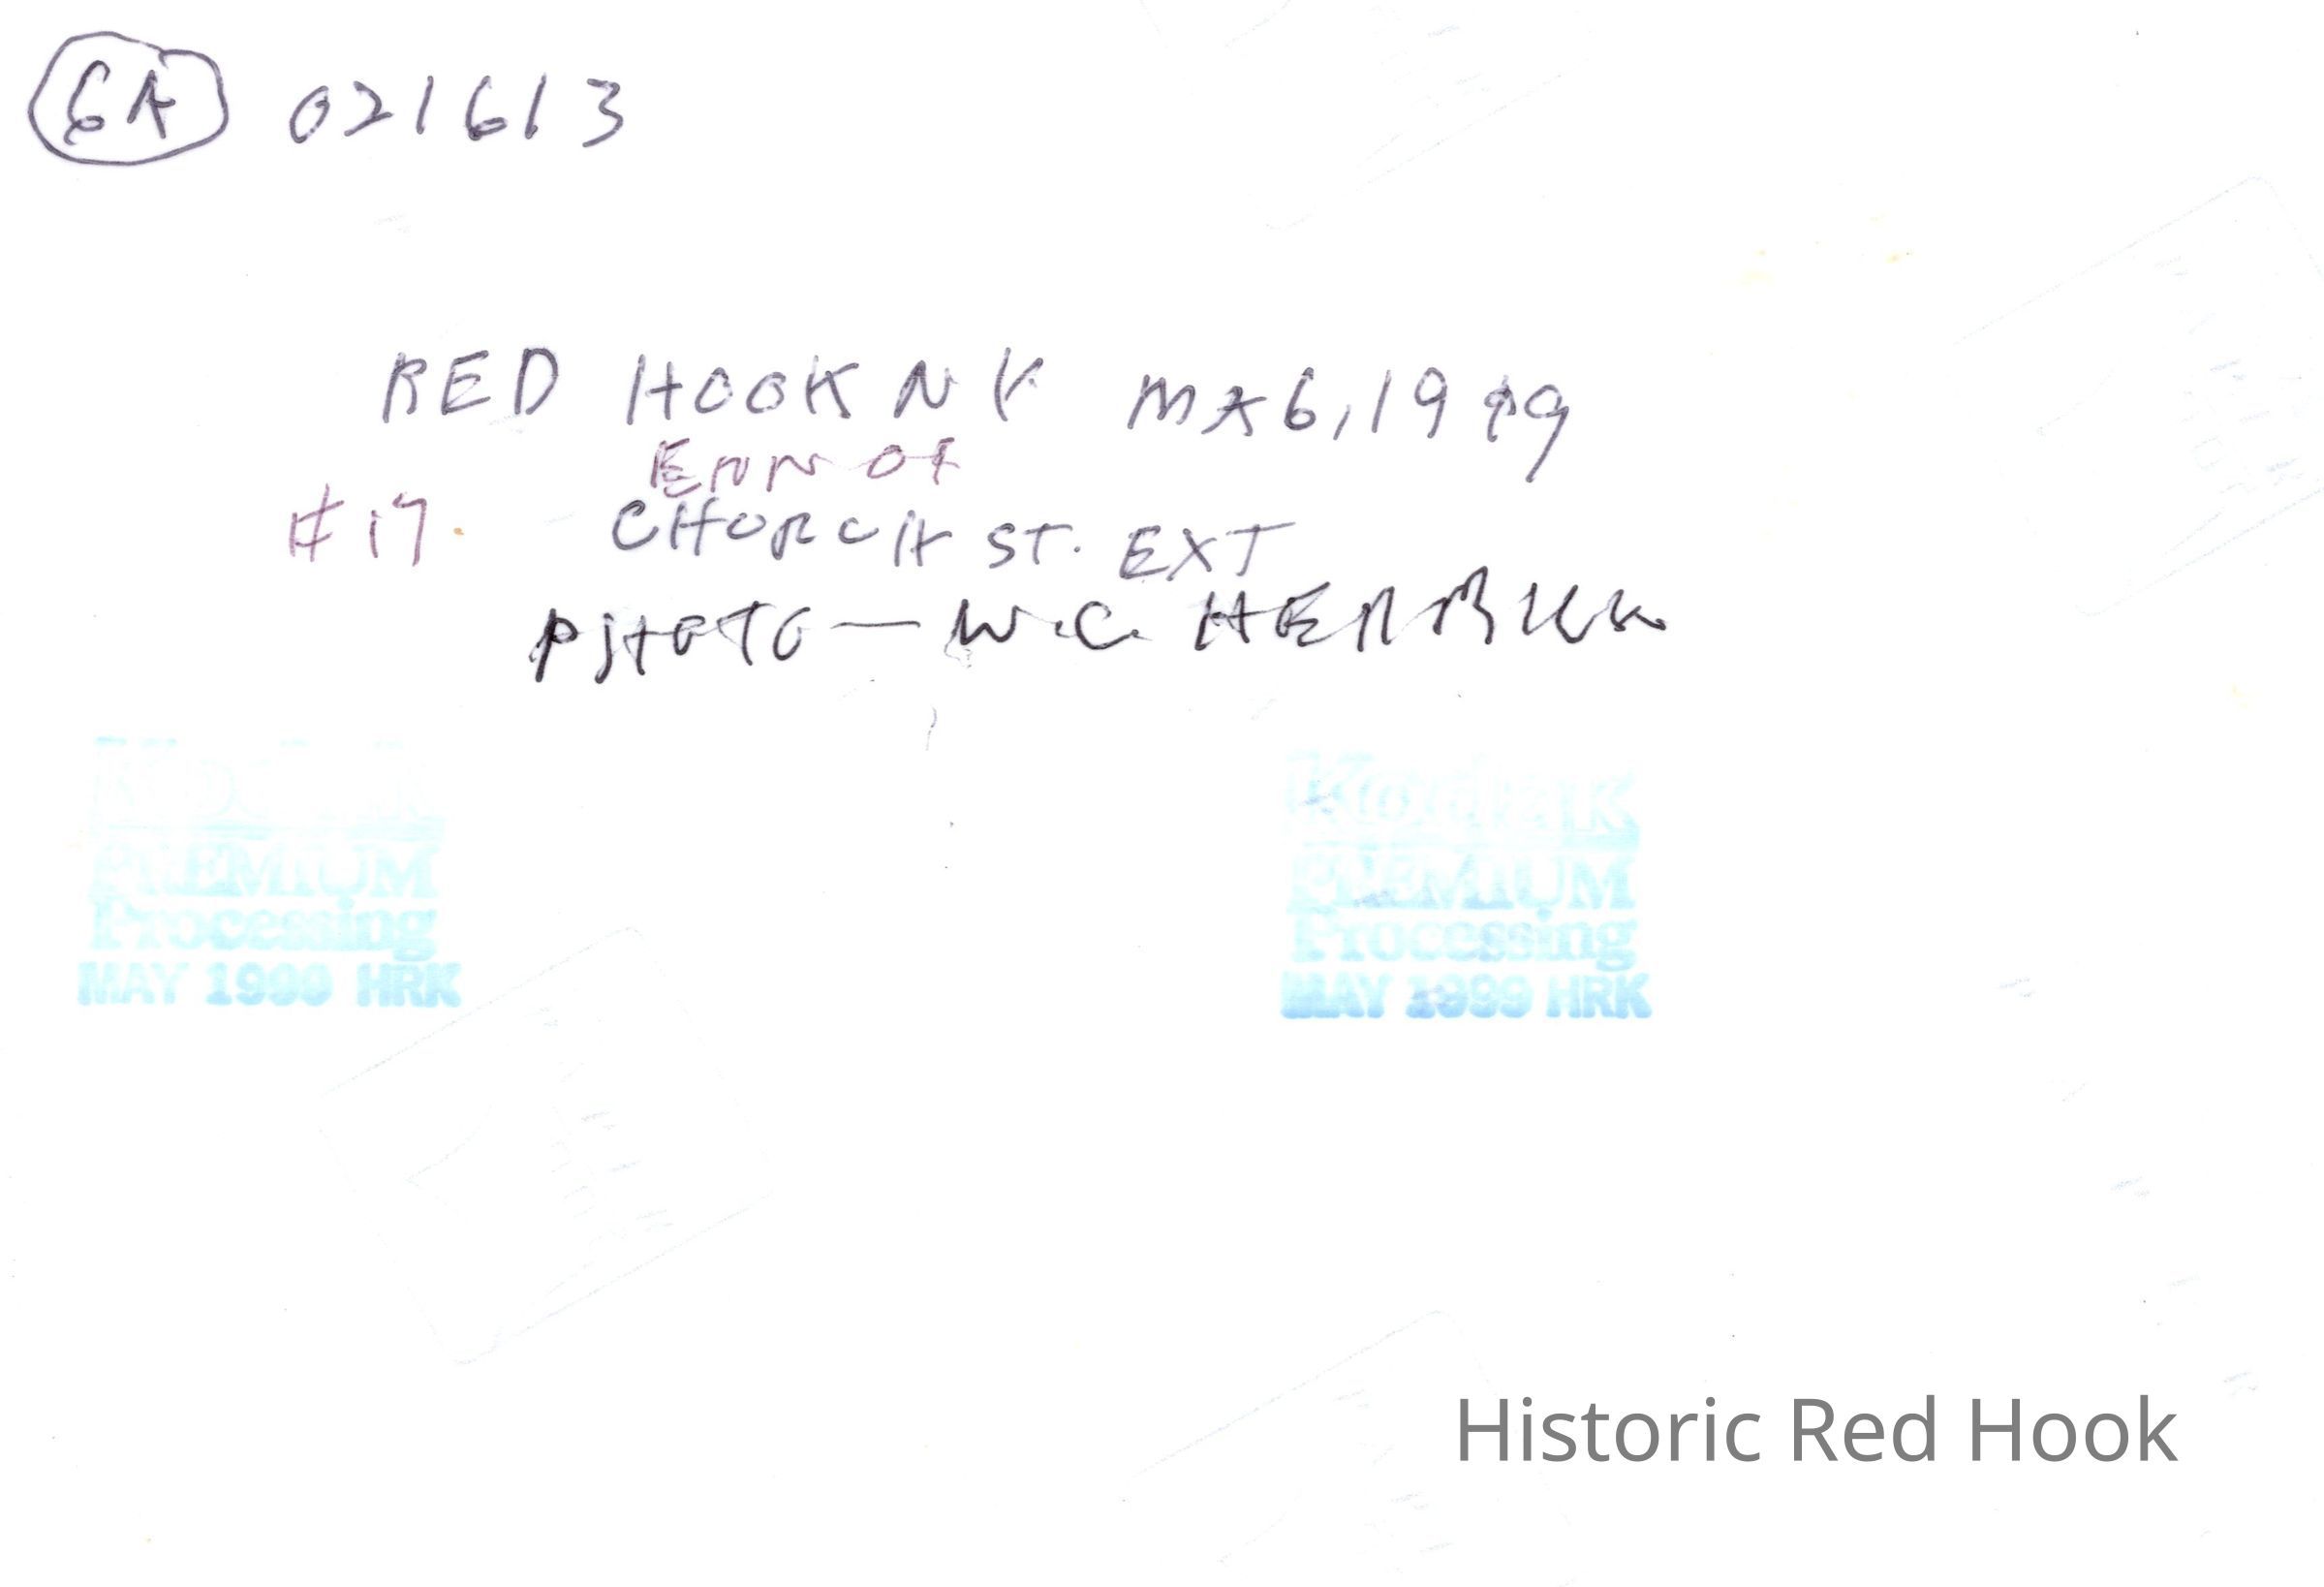 6A 021613
RED HOOK NY MA 6, 1999
END OF
#17. CHURCH ST. EXT
PHOTO — W.C.
Kodak Kodak
PREMIUM PREMIUM
Processing Processing
MAY 1999 HRK MAY 1999 HRK
Historic Red Hook